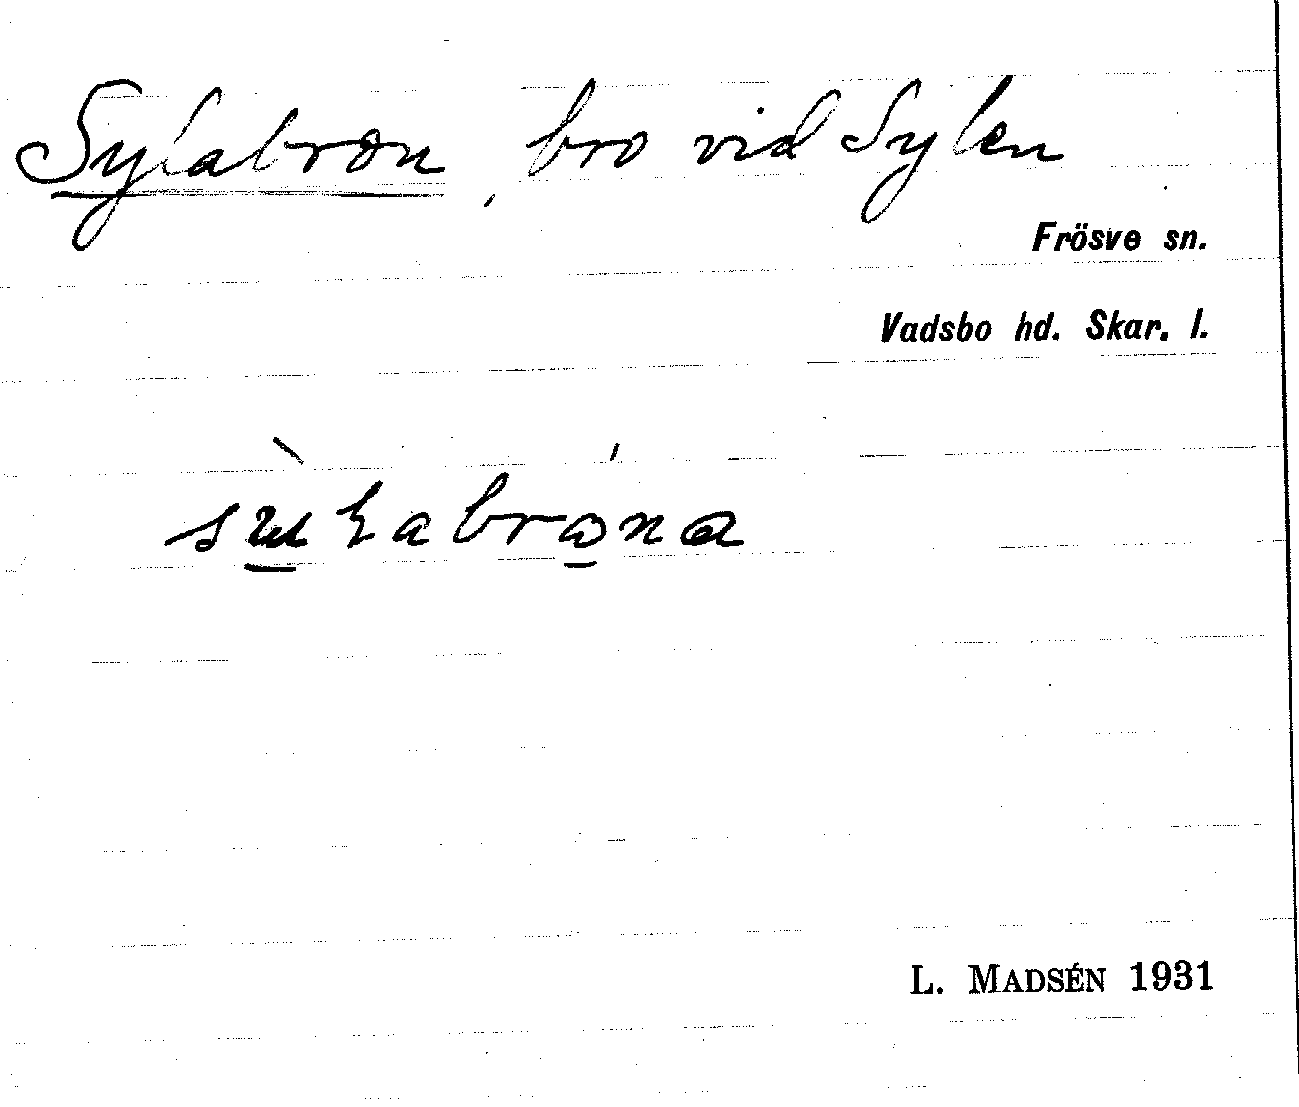 Sylabron, bro vid Sylen
Frösve sn.
Vadsbo hd. Skar. l.
L. MADSÉN 1931